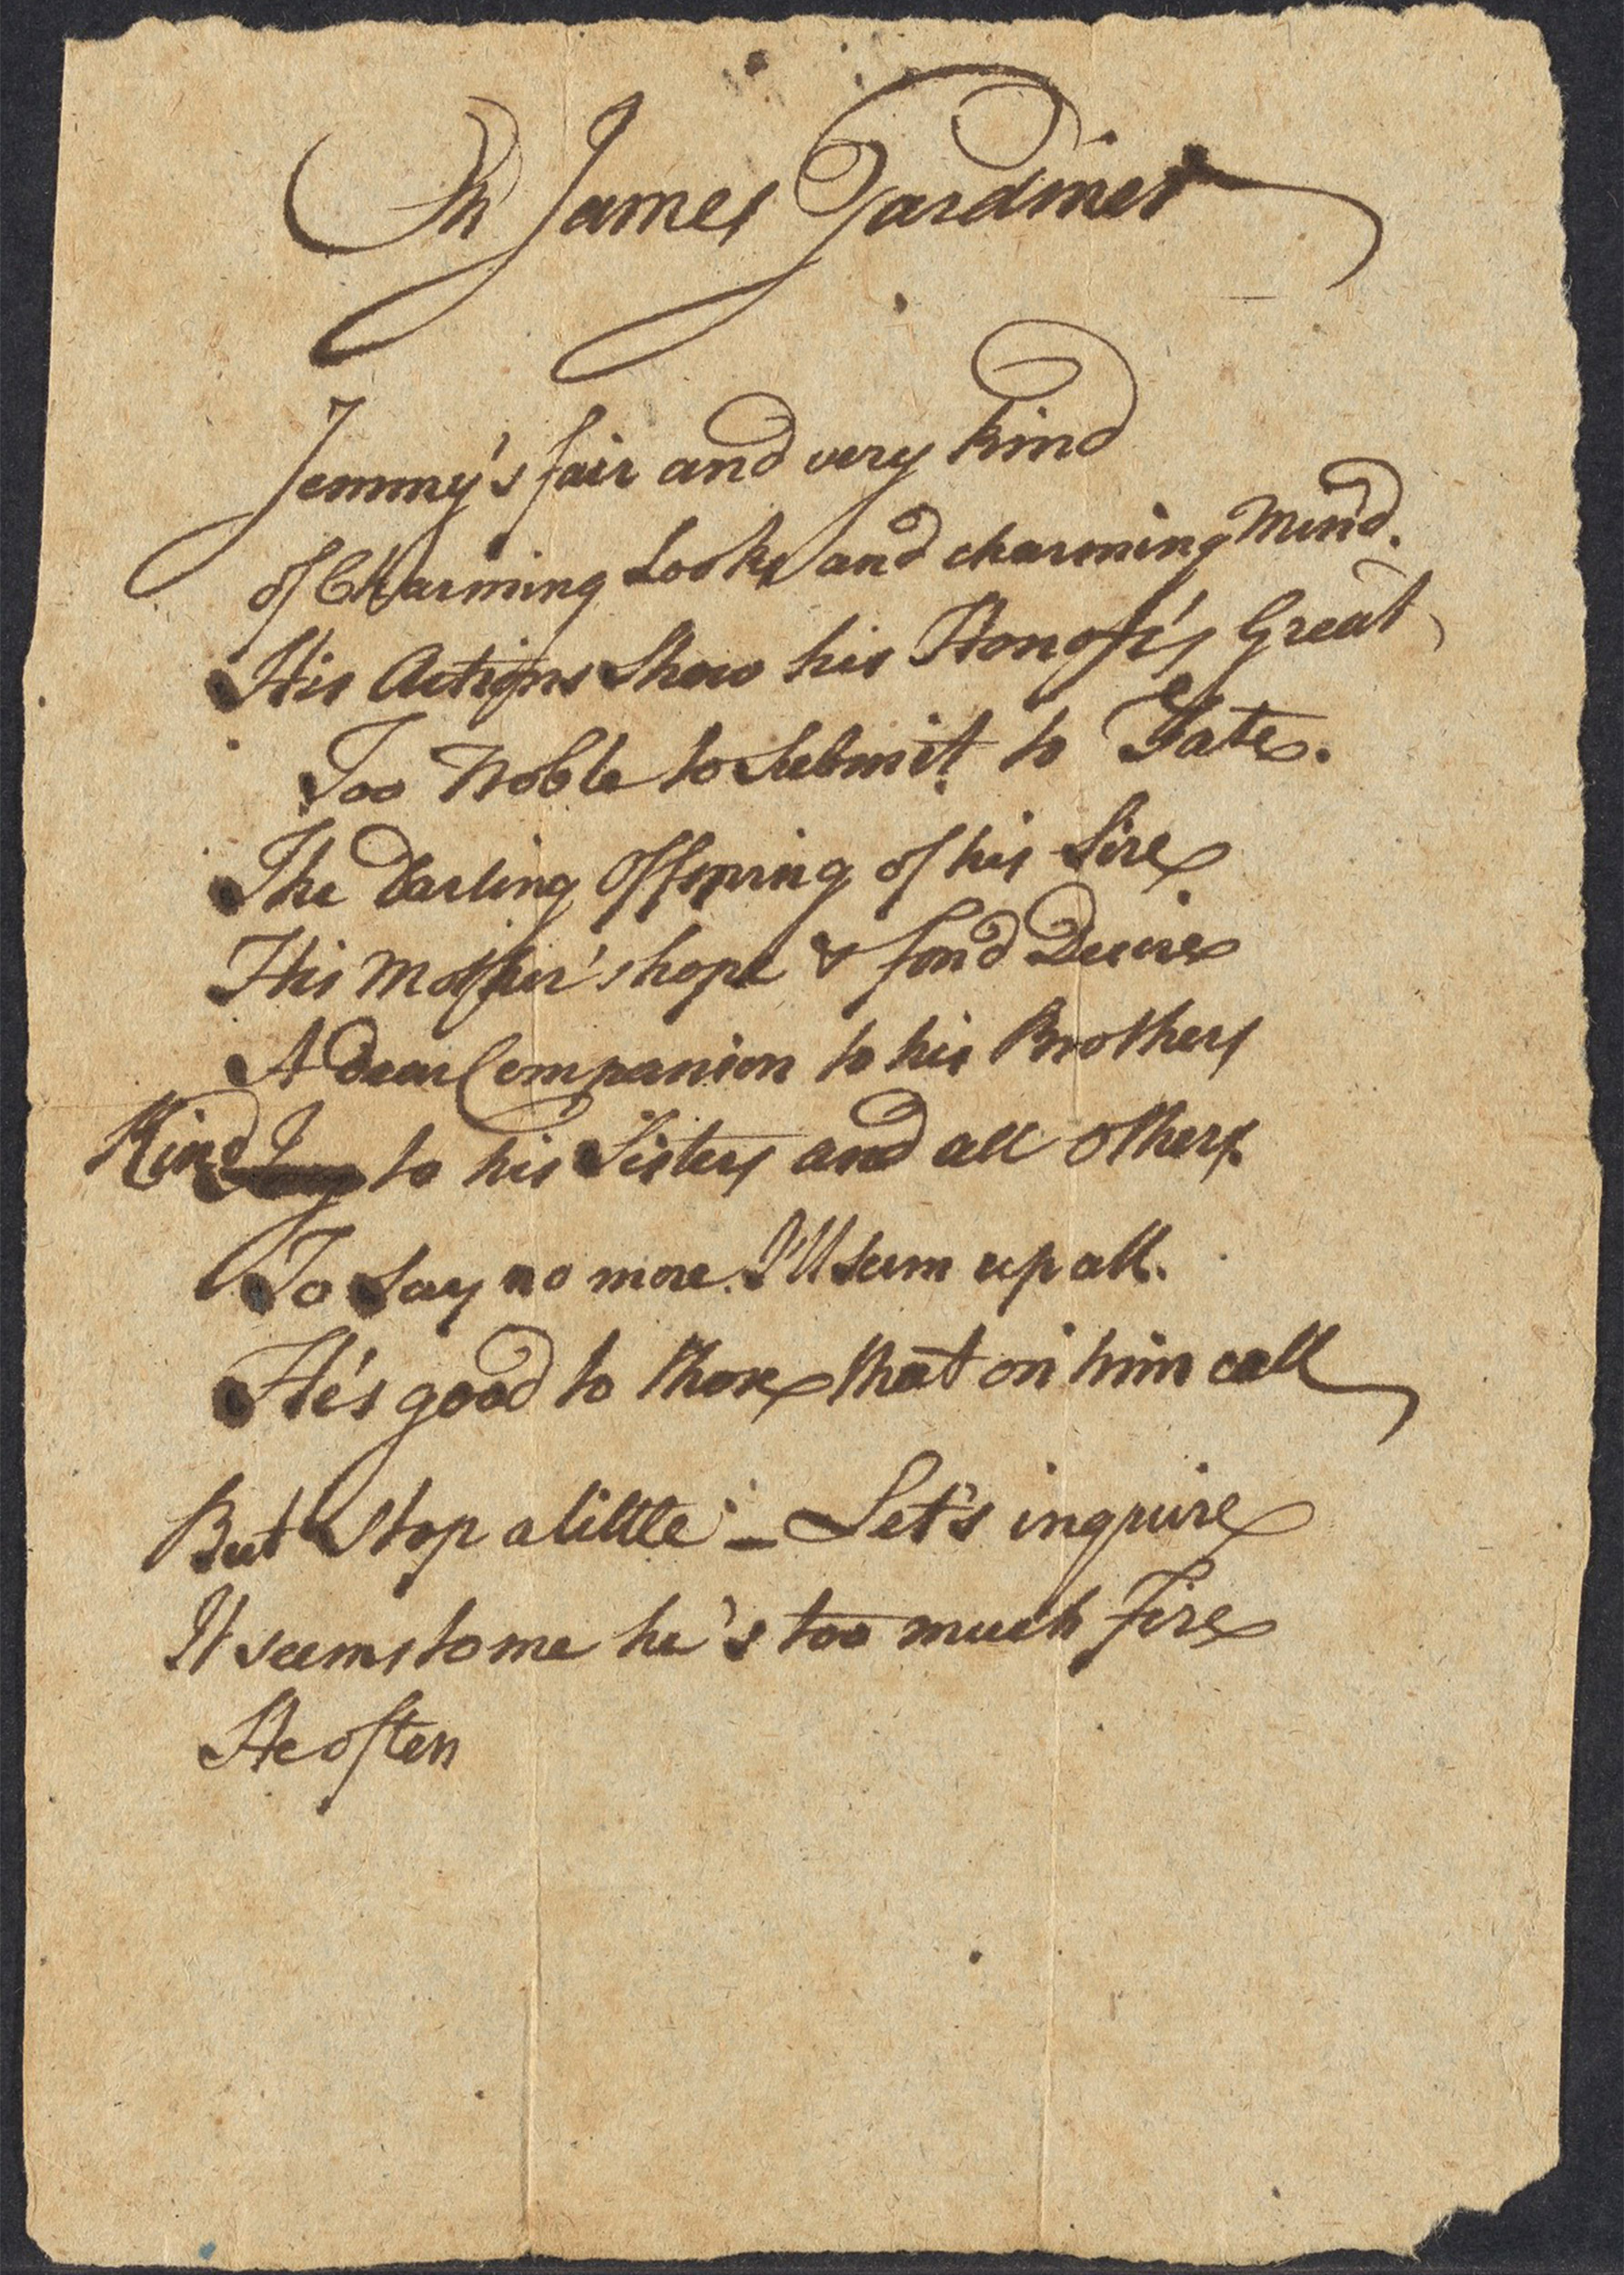 On James Gardiner
Jemmy's fair and very kind
of Charming Looks and charming Mind.
His Actions Show his Honor's Great
Too Noble to Submit to Fate.
The Darling Offspring of his Sire
His Mother's hope & fond Desire
A dear Companion to his Brothers
Kind to his Sisters and all others.
To Say no more. I'll sum up all.
He's good to those that on him call
But Stop a little – Let's inquire
It seems to me he's too much Fire
He often